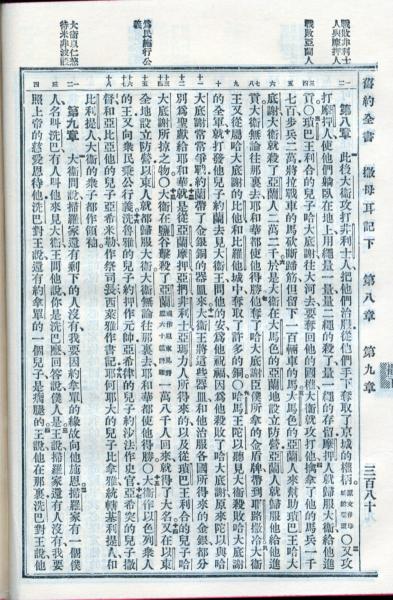 舊約全書 撒母耳記下 第八章 第九章 三百八十
戰敗非利士人與摩押人
戰敗亞蘭人
為民施行公義
大衛以仁慈待米非波設
第八章 此後大衛攻打非利士人把他們治服從他們手下奪取了京城的權柄○又攻
打摩押人使他們躺臥在地上用繩量一量量二繩的殺了量一繩的存留摩押人就歸服大衛給他進
貢○瑣巴王利合的兒子哈大底謝往大河去要奪回他的國權大衛就攻打他擒拿了他的馬兵一千
七百步兵二萬將拉戰車的馬砍斷蹄筋但留下一百輛車的馬大馬色的亞蘭人來幫助瑣巴王哈大
底謝大衛就殺了亞蘭人二萬二千於是大衛在大馬色的亞蘭地設立防營亞蘭人就歸服他給他進
貢大衛無論往那裏去耶和華都使他得勝他奪了哈大底謝臣僕所拿的金盾牌帶到耶路撒冷大衛
王又從屬哈大底謝的比他和比羅他城中奪取了許多的銅○哈馬王陀以聽見大衛殺敗哈大底謝
的全軍就打發他兒子約蘭去見大衛王問他的安為他祝福因為他殺敗了哈大底謝原來陀以與哈
大底謝常常爭戰約蘭帶了金銀銅的器皿來大衛王將這些器皿和他治服各國所得來的金銀都分
別為聖獻給耶和華就是從亞蘭摩押亞捫非利士亞瑪力人所得來的以及從瑣巴王利合的兒子哈
大底謝所掠之物○大衛在鹽谷擊殺了亞蘭一萬八千人回來就得了大名又在以東
全地設立防營以東人就都歸服大衛大衛無論往那裏去耶和華都使他得勝○大衛作以色列眾人
的王又向眾民秉公行義洗魯雅的兒子約押作元帥亞希律的兒子約沙法作史官亞希突的兒子撒
督和亞比亞他的兒子亞希米勒作祭司長西萊雅作書記耶何耶大的兒子比拿雅統轄基利提人和
比利提人大衛的眾子都作領袖
第九章 大衛問說掃羅家還有剩下的人沒有我要因約拿單的緣故向他施恩掃羅家有一個僕
人名叫洗巴有人叫他來見大衛王問他說你是洗巴麼回答說僕人是王說掃羅家還有人沒有我要
照上帝的慈愛恩待他洗巴對王說還有約拿單的一個兒子是瘸腿的王說他在那裏洗巴對王說他